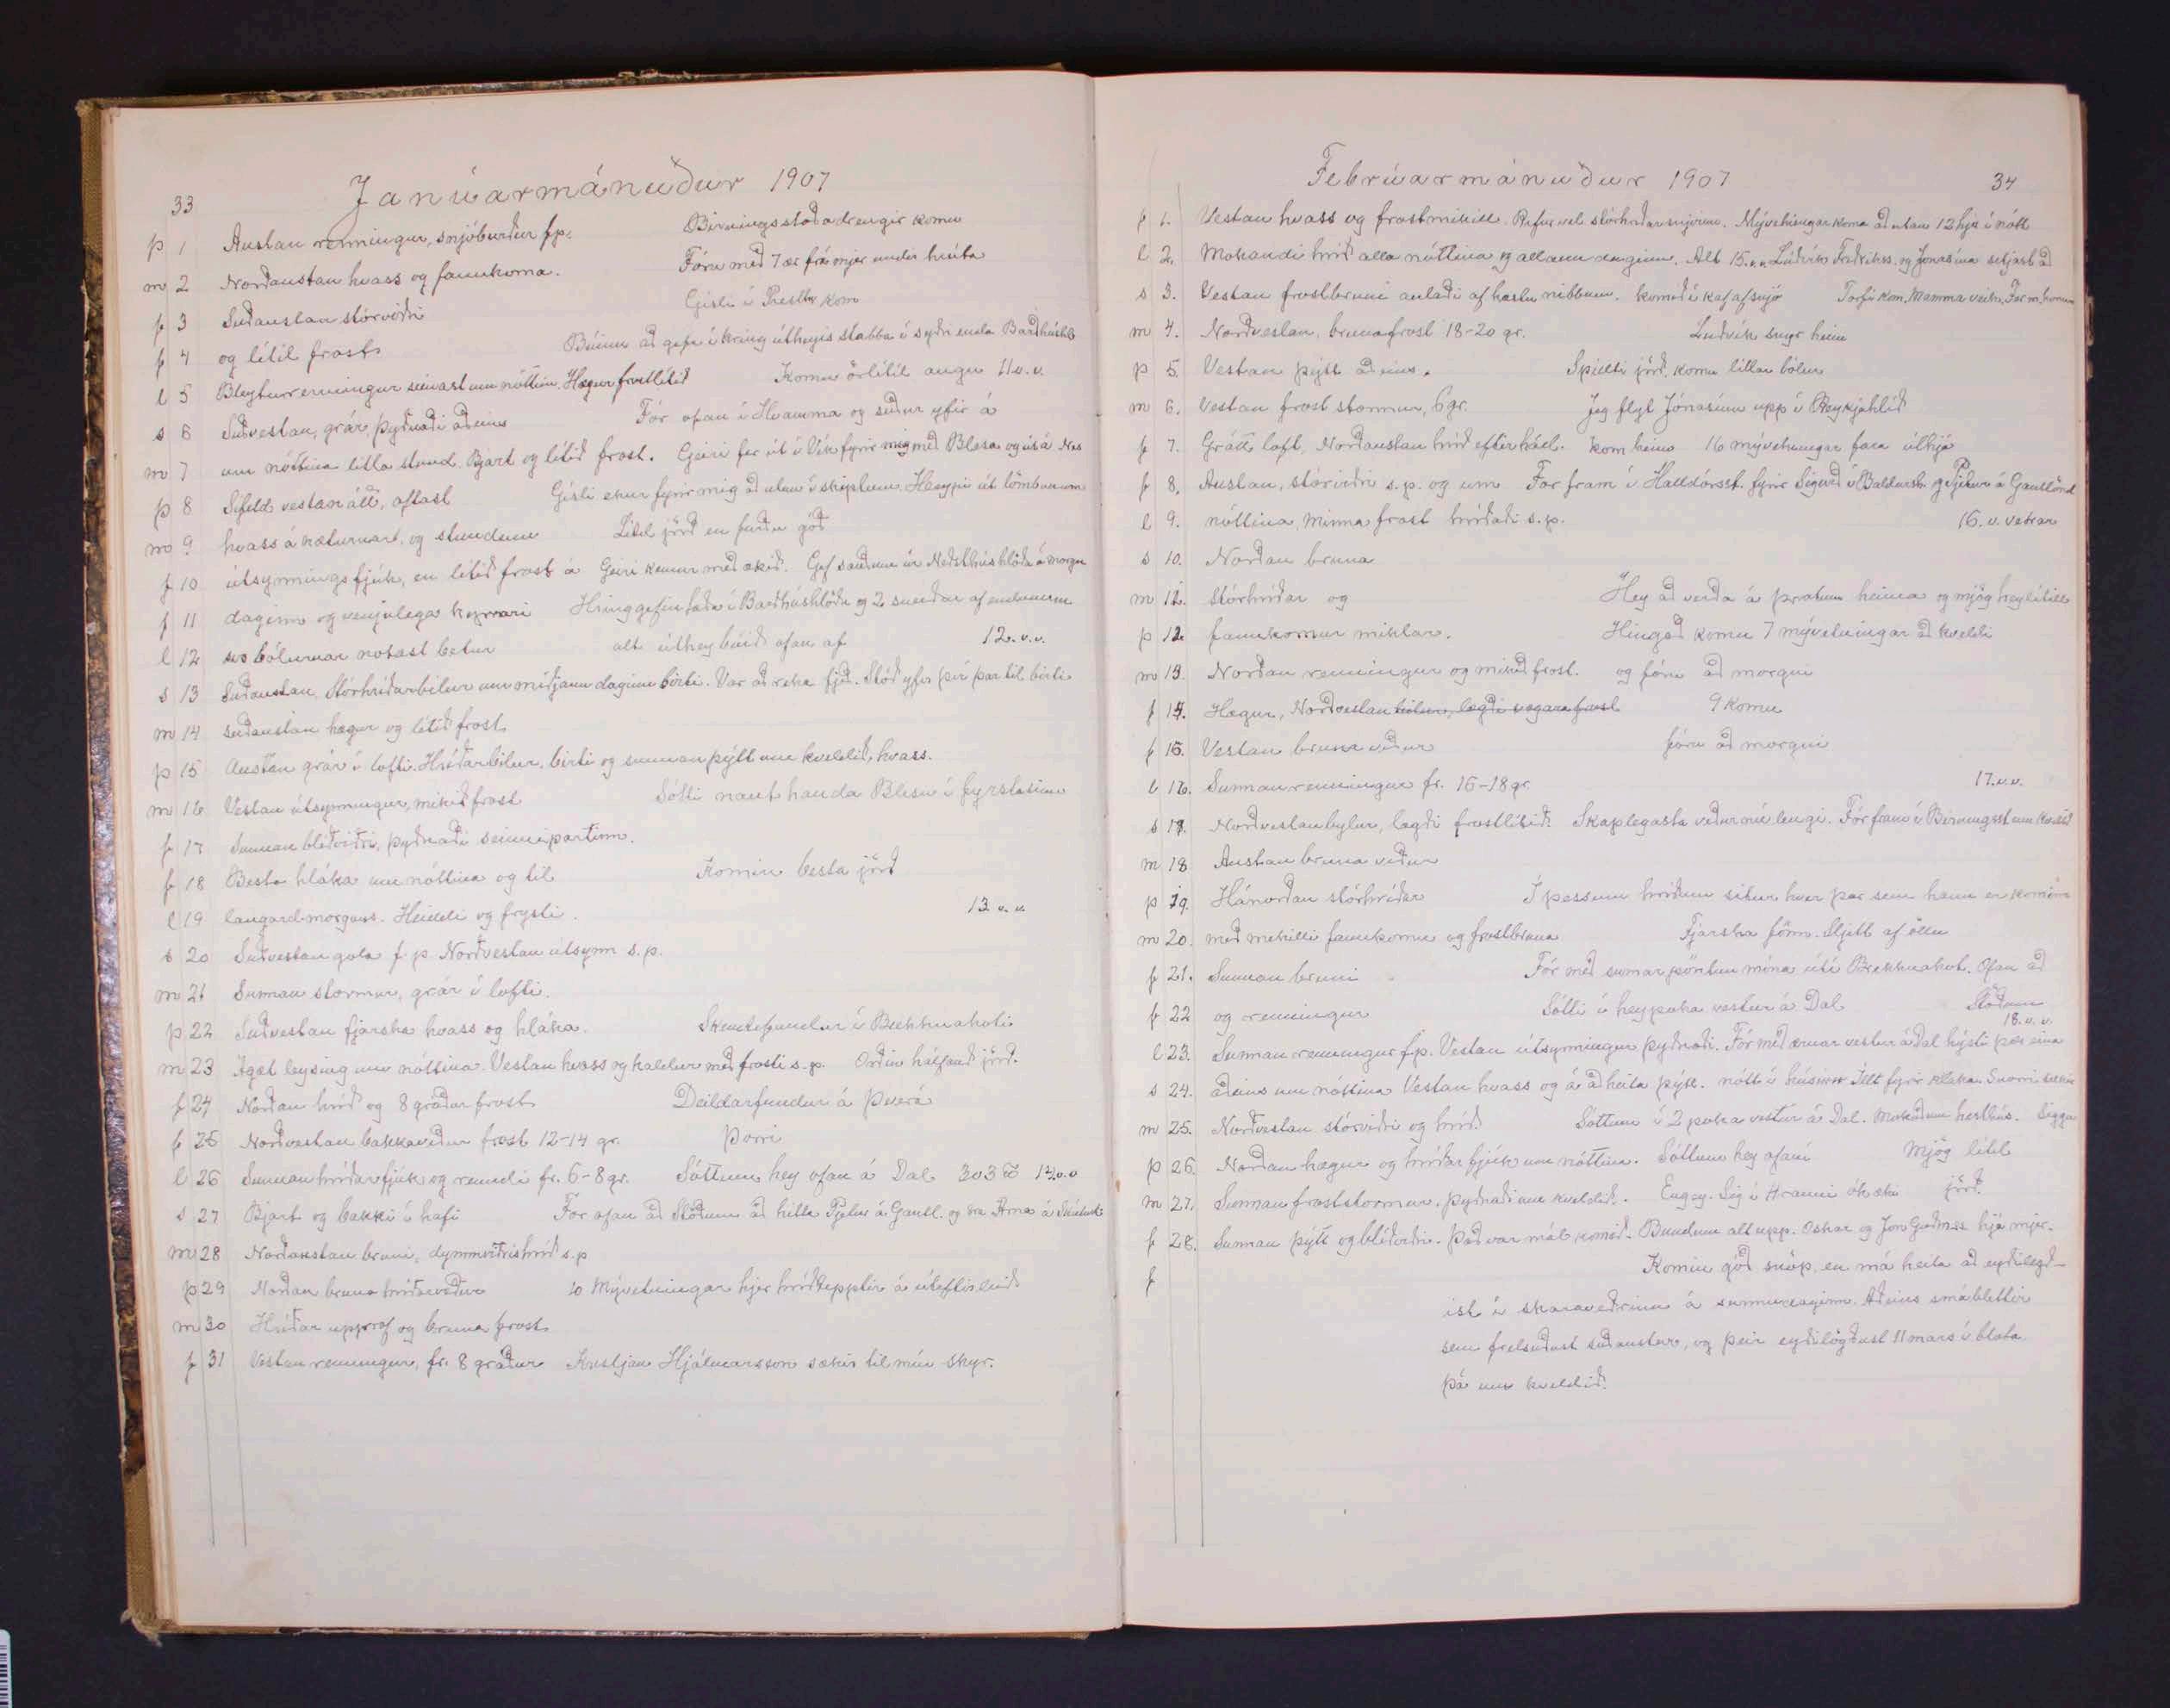 33 Janúarmánuður 1907
þ 1 Austan renningur, snjóburður fp. Birningsstaðadrengir komu
m 2 Norðaustan hvass og fannkoma. Fóru með 7 ær frá mjer undir hrúta
f 3 Suðaustan stórviðri Gísli í Presthv. kom
f 4 og lítil frost Búinn að gefa í kring útheyis stabba í syðri enda Barðhúshl.
l 5 Bleyturenningur seinast um nóttina. Hægur frostlítið Komu örlitlir angar 11 v.v.
s 6 Suðvestan, grár, þyðnaði aðeins Fór ofan í Hvamma og suður yfir á
m 7 um nóttina litla stund. Bjart og lítið frost. Geiri fer út í Vík fyrir mig með Blesa og út á Nes
þ 8 Sífeld vestan átt, oftast Gísli ekur fyrir mig að utan í skiptum. Hleypti út lömbunum
m 9 hvass á næturnar, og stundum Lítil jörð en furðu góð
f 10 útsynningsfjúk, en lítið frost á Geiri kemur með ækið. Gef sauðum úr Neðsthúshlöðu á morgn
f 11 daginn og venjulega kyrrari Hringgefin taða í Barðhúshlöðu og 2 sneiðar af endanum
l 12 svo bólurnar notast betur alt úthey búið ofan af 12. v.v.
s 13 Suðaustan, Stórhríðarbilur um miðjann daginn birti. Var að reka fjeð. Stóð yfir því þar til birti
m 14 suðaustan hægur og lítið frost
þ 15 Austan grár í lofti. Hríðarbilur, birti og sunnan þýtt um kveldið, hvass.
m 16 Vestan útsynningur, mikið frost Sótti naut handa Blesu í fyrstasinn
f 17 Sunnan blíðviðri, þyðnaði seinnipartinn.
f 18 Besta hláka um nóttina og til Komin besta jörð
l 19 laugard.morguns. Heiddi og frysti. 13 v.v.
s 20 Suðvestan gola f.p. Norðvestan útsynn s.p.
m 21 Sunnan stormur, grár í lofti.
þ 22 Suðvestan fjarska hvass og hláka. Skemtifundur í Brekknakoti
m 23 Ágæt leysing um nóttina. Vestan hvass og kaldur með frosti s.p. Orðin hálfauð jörð.
f 24 Norðan hríð og 8 gráðu frost Deildarfundur á Þverá
f 25 Norðvestan bakkaveður frost 12-14 gr. Þorri
l 26 Sunnan hríðarfjúk og renndi fr. 6-8 gr. Sóttum hey ofan á Dal 14 v.v
s 27 Bjart og bakki í hafi Fór ofan að Stöðum að hitta Pjetur á Gautl. og sra Árna á Skútust
m 28 Norðaustan bruni, dymmviðrishríð s.p
þ 29 Norðan bruna hríðarveður 10 Mývetningar hjer hríðtepptir á úteftirleið
m 30 Hríðar upprof og bruna frost
f 31 Vestan renningur, fr. 8 gráður Kristján Hjálmarsson sækir til mín skyr.
Febrúarmánuður 1907 34
f 1. Vestan hvass og frostmikill. Refur vel stórhríðarsnjóinn. Mývetningar koma að utan 12 hjer í nótt
l 2. Mokandi hríð alla nóttina og allann daginn. Alt 15. v.v. Lúðvík Friðrikss. og Jónasína setjast að
s 3. Vestan frostbruni anlaði af hæstu nibbum. komið í kaf af snjó Torfi kom, Mamma veik, Fór m. honum
m 4. Norðvestan, brunafrost 18-20 gr. Lúðvík snýr heim
þ 5. Vestan þýtt aðeins. Spillti jörð, komu litlar bólur
m 6. Vestan frost stormur, 6 gr. Jeg flyt Jónasínu upp í Reykjahlíð
f 7. Grátt loft, Norðaustan hríð eftir hád. kom heim 16 mývetningar fara úthjá
f 8. Austan, stórviðri s.p. og um Fór fram í Halldórsst. fyrir Sigurð í Baldursh. og Pjetur á Gautlönd
l 9. nóttina, Minna frost hríðaði s.p. 16. v. vetrar
s 10. Norðan bruna
m 11. stórhríðar og Hey að verða á þrotum heima og mjög heylítill
þ 12. fannkomur miklar. Hingað komu 7 mývetningar að kveldi
m 13. Norðan renningur og mikið frost. og fóru að morgni
f 14. Hægur, Norðvestan 9 komu
f 15. Vestan bruna veður fóru að morgni
l 16. Sunnan renningur fr. 16-18 gr. 17. v.v.
s 17. Norðvestanbylur, lagði frostlítið. Skaplegasta veður nú lengi. Fór fram í Birningsst um kveld
m 18 Austan bruna veður
þ 19. Hánorðan stórhríðar Í þessum hríðum situr hver þar sem hann er kominn
m 20. með mikilli fannkomu og frostbruna Fjarska fönn. Sljétt af öllu
f 21. Sunnan bruni Fór með sumarpöntun mína út í Brekknakot. Ofan að
f 22 og renningur Sótti í heypoka vestur á Dal Stöðum
18. v.v.
l 23. Sunnan renningur f.p. Vestan útsynningur þyðnaði. Fór með ærnar vestur á Dal hýsti þær eina
s 24. aðeins um nóttina Vestan hvass og á að heita þýtt. nótt í húsinu Illt fyrir klaka. Snorri sækir
m 25. Norðvestan stórviðri og hríð Sóttum í 2 poka vestur á Dal. Mokuðum hesthús. Siggu
þ 26. Norðan hægur og hríðarfjúk um nóttina. Sóttum hey ofaní Mjög lítil
m 27. Sunnan froststormur, þyðnaði um kveldið. Engey. Sig í Hrauni ók æki jörð.
f 28. Sunnan þýtt og blíðviðri. Það var mál komið. Bundum alt upp. Oskar og Jón Guðmss hjá mjer.
f Komin góð snöp, en má heita að eyðilegð-
ist í skaraveðrinu á sunnudaginn. Aðeins smáblettir
sem frelsuðust suðaustur, og þeir eyðilögðust 11 mars í blota
þá um kveldið.